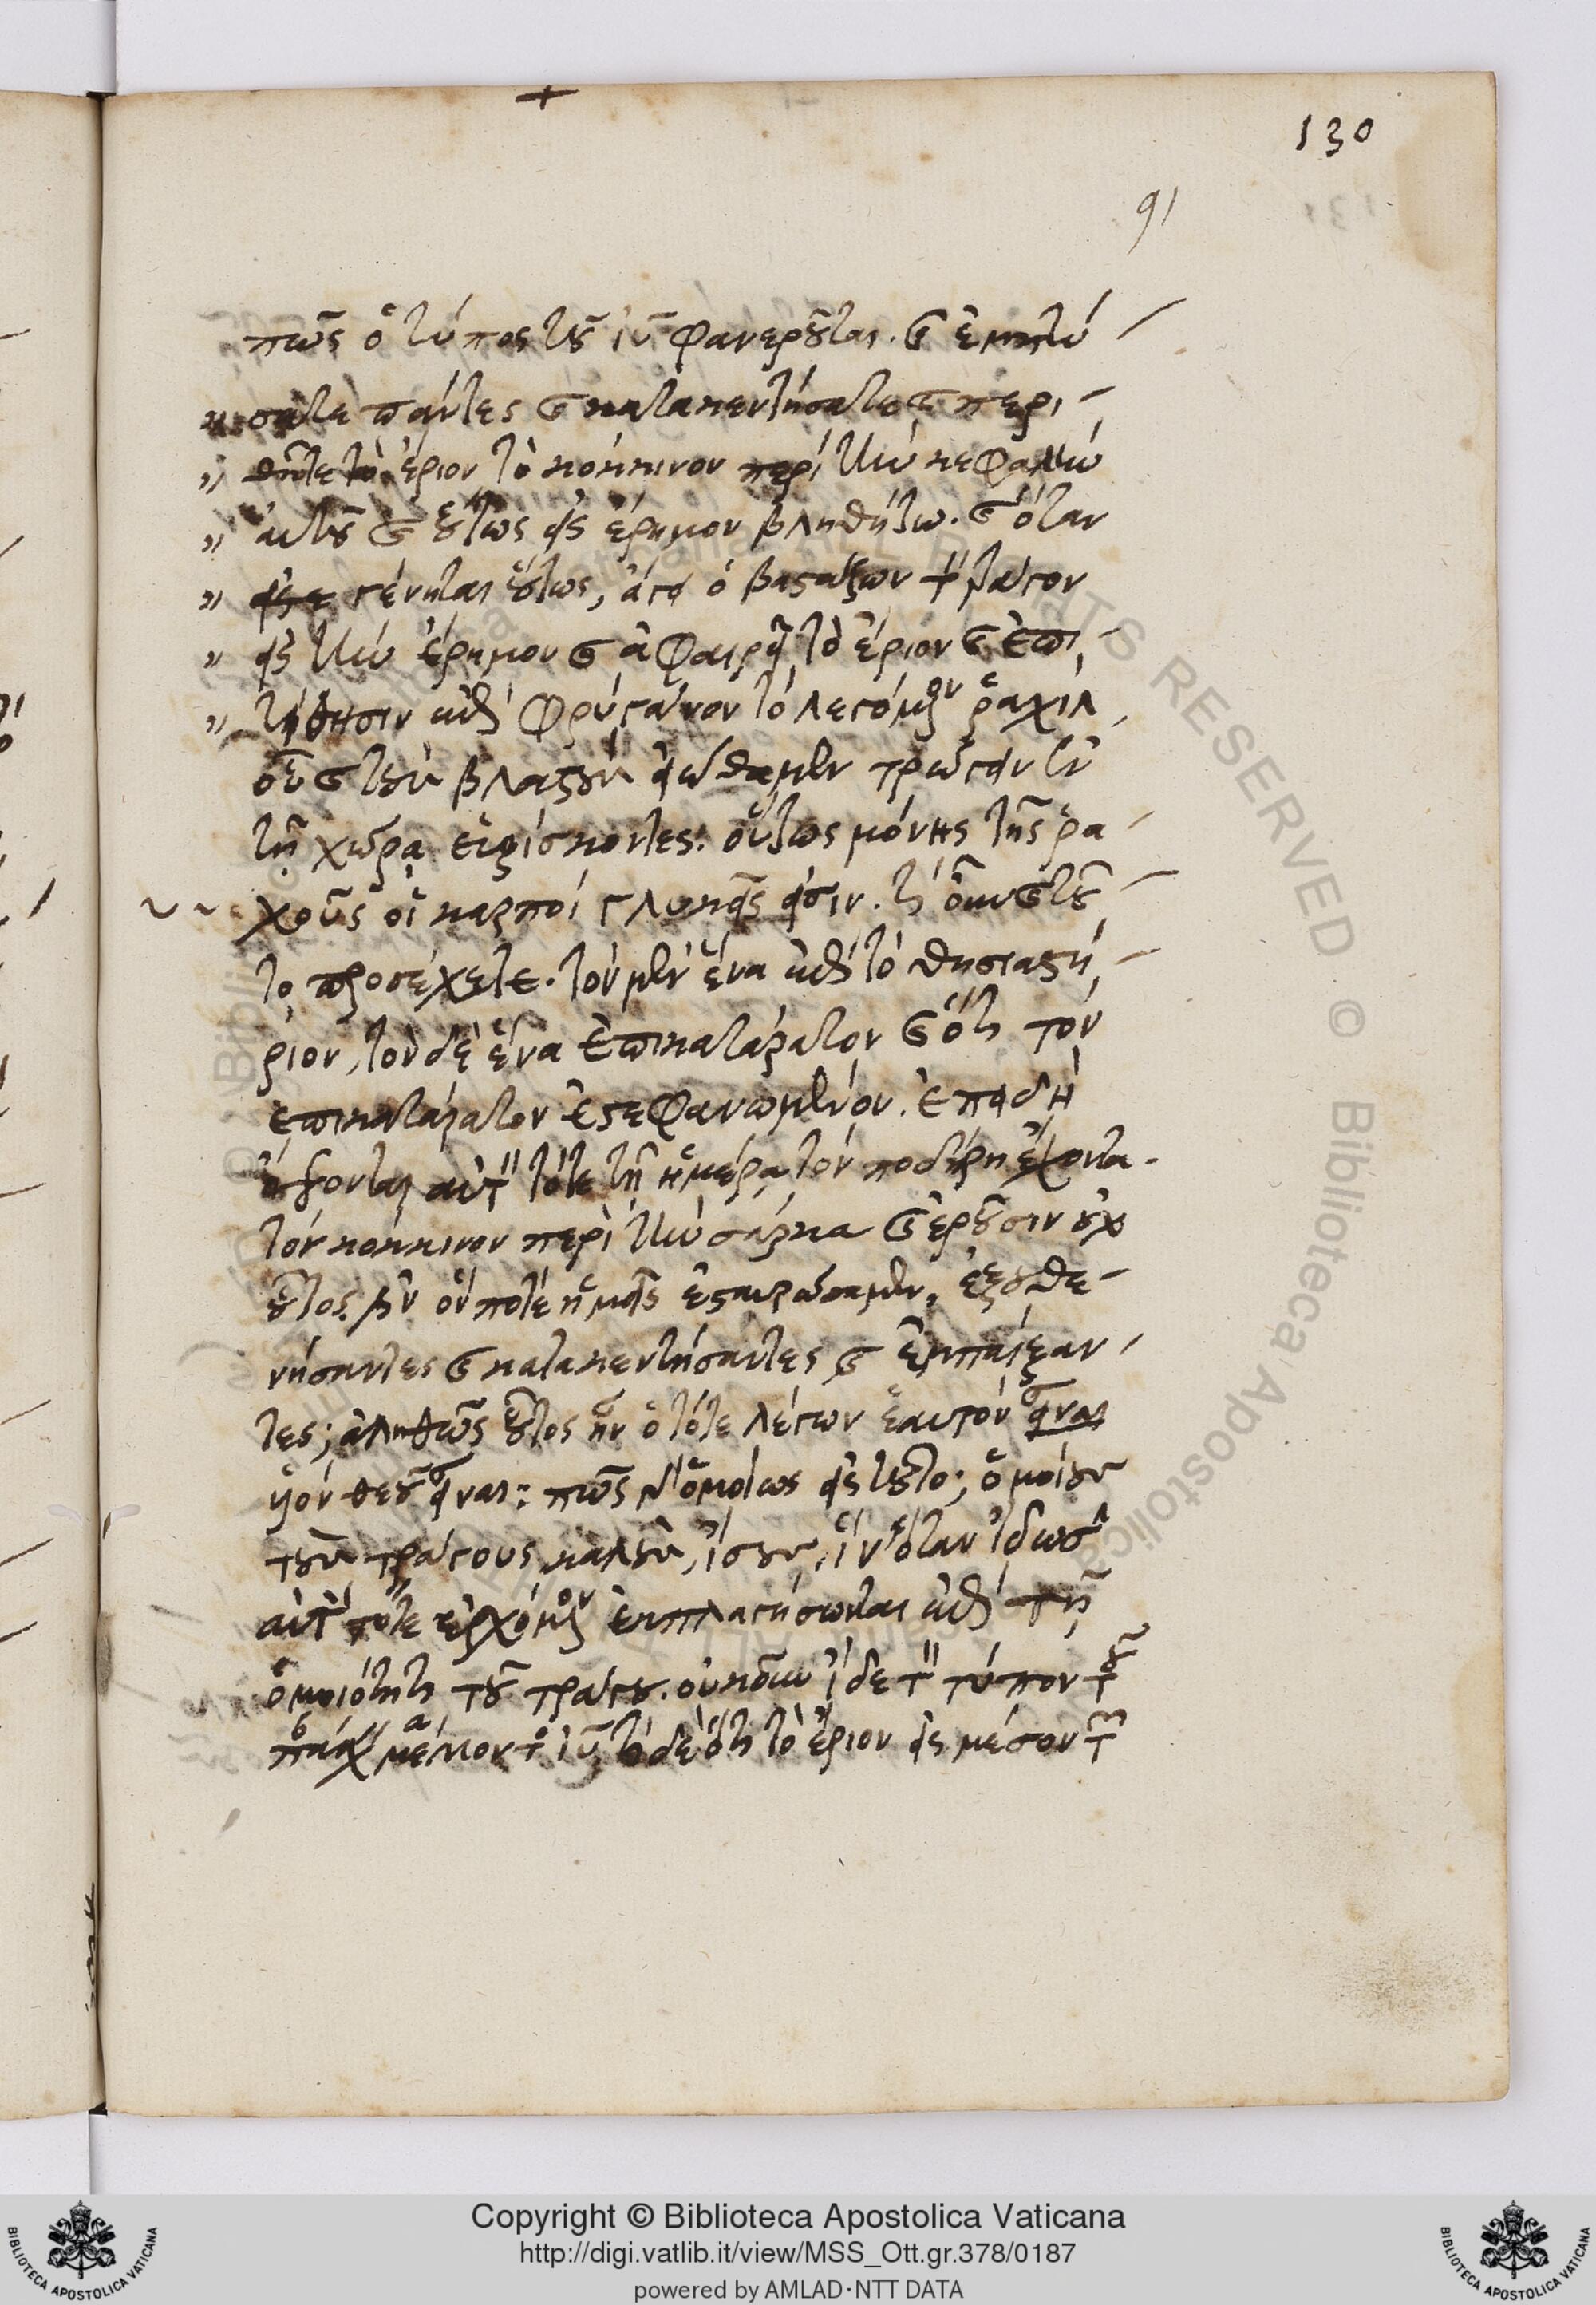 130
91
πῶς ὁ τύπος τοῦ ἰῦ φανεροῦται. καὶ ἐμπτύ
σατε πάντες καὶ κατακεντήσατε καὶ περι
θῆτε τὸ ἔριον τὸ κόκκινον περὶ τὴν κεφαλὴν
αὐτοῦ καὶ οὕτως εἰς ἔρημον βληθήτω. καὶ ὅταν
γένηται οὕτως, ἄγει ὁ βαστάζων τὸν τράγον
εἰς τὴν ἔρημον καὶ ἀφαιρεῖ τὸ ἔριον καὶ ἐπι
τίθησιν ἐπὶ φρύγανον τὸ λεγόμενον ῥαχιλ
οὗ καὶ τοὺς βλαστοὺς εἰώθαμεν τρώγειν ἐν
τῇ χώρᾳ εὑρίσκοντες. οὕτως μόνης τῆς ῥα
χοῦς οἱ καρποὶ γλυκεῖς εἰσιν. τί οὖν καὶ τοῦ
το προσέχετε. τὸν μὲν ἕνα ἐπὶ τὸ θυσιαστή
ριον, τὸν δὲ ἕνα ἐπικατάρατον καὶ ὅτι τὸν
ἐπικατάρατον ἐστεφανωμένον. ἐπειδὴ
ὄψονται αὐτὸν τότε τῇ ἡμέρᾳ τὸν ποδήρη ἔχοντα
τὸν κόκκινον περὶ τὴν σάρκα καὶ ἐροῦσιν οὐχ
οὗτός ἐστιν ὅν ποτε ἡμεῖς ἐσταυρώσαμεν, ἐξουθε
νήσαντες καὶ κατακεντήσαντες καὶ ἐμπαίξαν
τες; ἀληθῶς οὗτος ἦν ὁ τότε λέγων ἑαυτὸν εἶναι
υἱὸν θεοῦ εἶναι: πῶς γὰρ ὁμοίως εἰς τοῦτο; ὁμοίους
τοὺς τράγους, καλοὺς, ἴσους, ἵν' ὅταν ἴδωσιν
αὐτὸν τότε ἐρχόμενον ἐκπλαγήσωνται ἐπὶ τῇ
ὁμοιότητι τοῦ τράγου. οὐκοῦν ἴδε τὸν τύπον τοῦ
πάσχειν μέλλοντος ἰῦ, τί δὲ ὅτι τὸ ἔριον εἰς μέσον τῶν
Copyright © Biblioteca Apostolica Vaticana
http://digi.vatlib.it/view/MSS_Ott.gr.378/0187
powered by AMLAD·NTT DATA